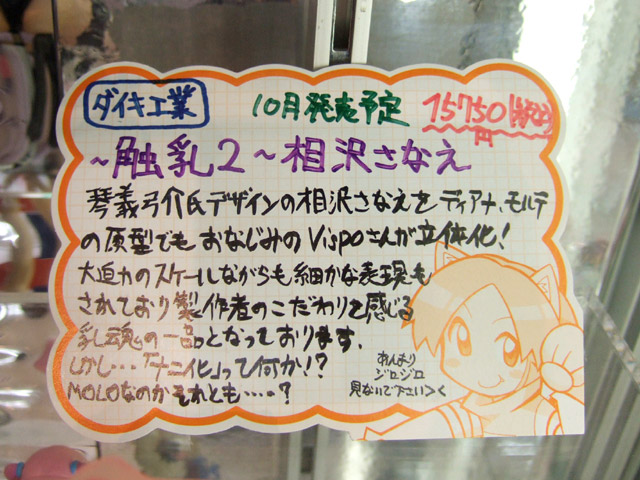 ダイキ工業
10月発売予定
15750円(税込)
~触乳2~相沢さなえ
琴義弓介氏デザインの相沢さなえをディアナ、モルテ
の原型でもおなじみのVispoさんが立体化!
大迫力のスケールながらも細かな表現も
されており製作者のこだわりを感じる
乳魂の一品となっております。
しかし…「ナニ化」って何か!?
MOLOなのかそれとも‥‥?
あんまり
ジロジロ
見ないで下さい><